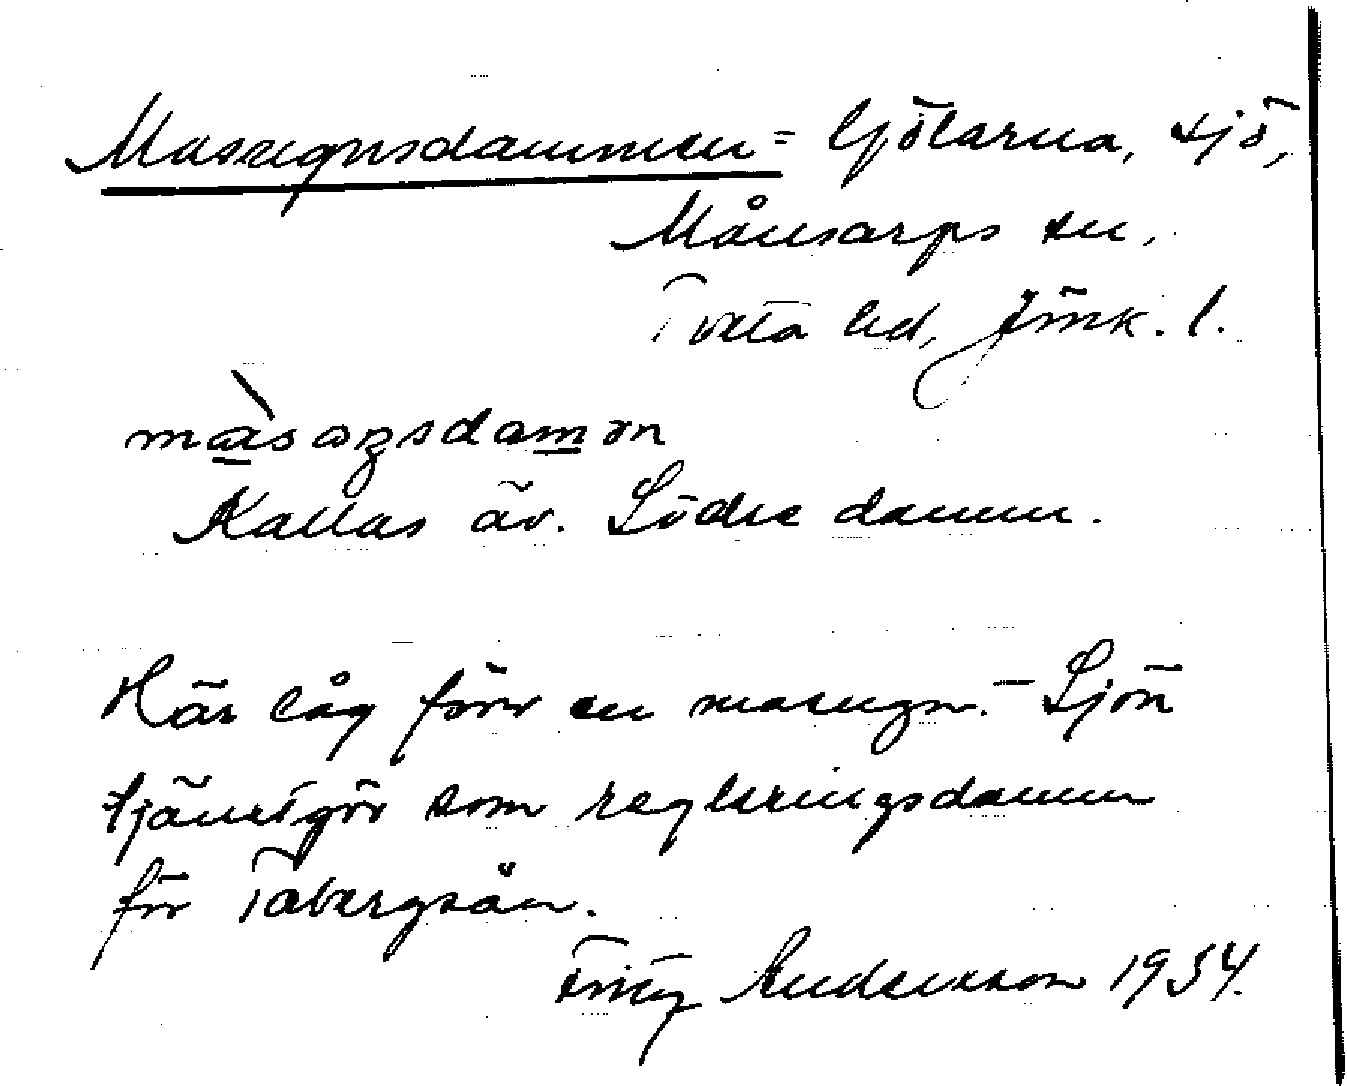 Masugnsdammen = Gölarna, sjö,
Månsarps sn,
Tveta hd, Jönk. l.
Kallas äv. Södra damm.
Här låg förr en masugn. - Sjön
tjänstgör som regleringsdamm
för Tabergsån.
Fritz Andersson 1934.